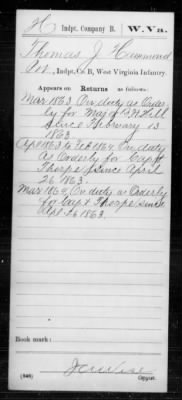 H Indpt. Company B. W. Va.
Thomas J Hammond
Pvt., Indpt. Co. B, West Virginia Infantry.
Appears on Returns as follows:
Mar 1863 On duty as Order
ly for Maj of P. Hill
since February 13
1863.
Apr 1863 to Feb 1864 On duty
as Orderly for Capt
Thorpe, since April
26 1863.
Mar 1864, On duty as Orderly
for Capt Thorpe since
Apl. 26 1863.
Book mark:
(546)
Copyist.